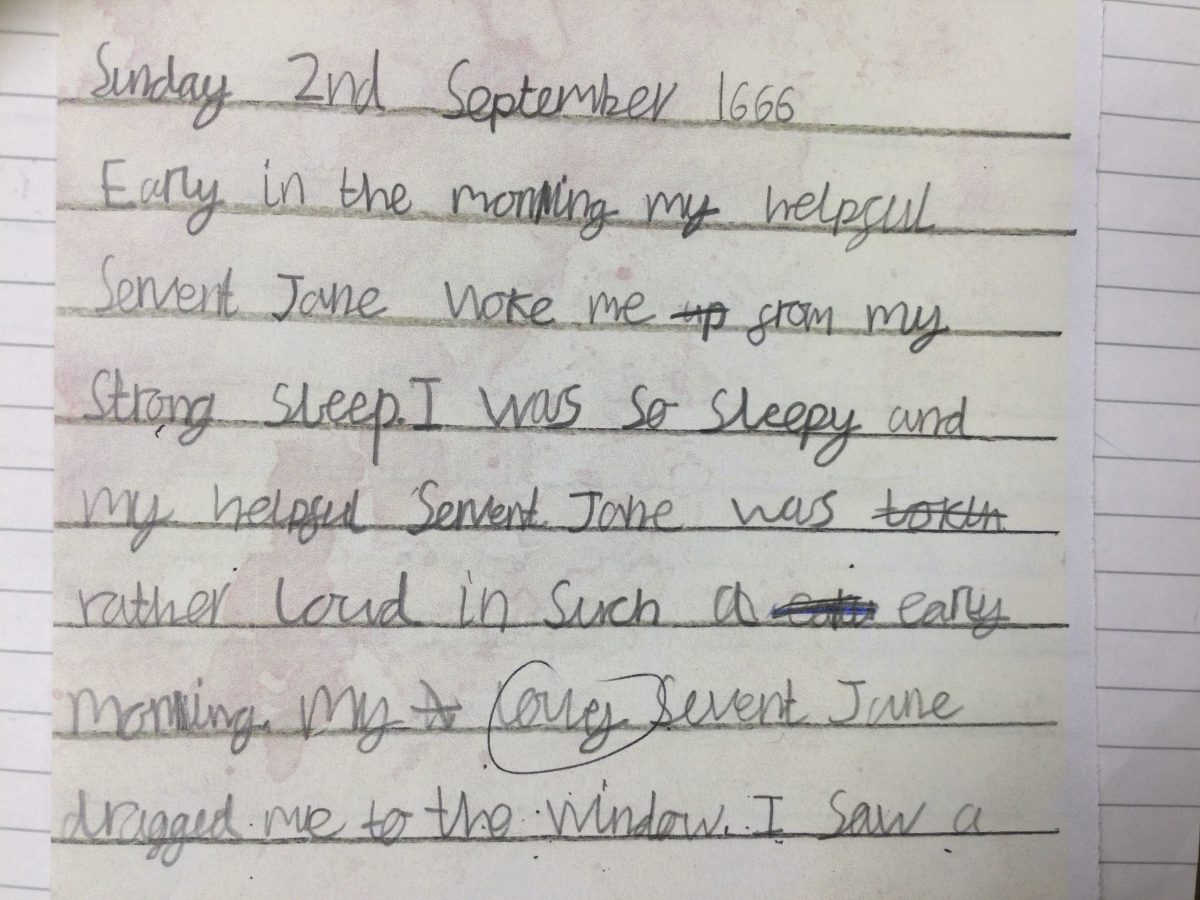 Sunday 2nd September 1666
Early in the morning my helpful
Servent Jane woke me up from my
Strong sleep. I was so sleepy and
my helpful Servent Jane was
rather loud in such a early
morning. My lovley Sevent Jane
dragged me to the window. I saw a